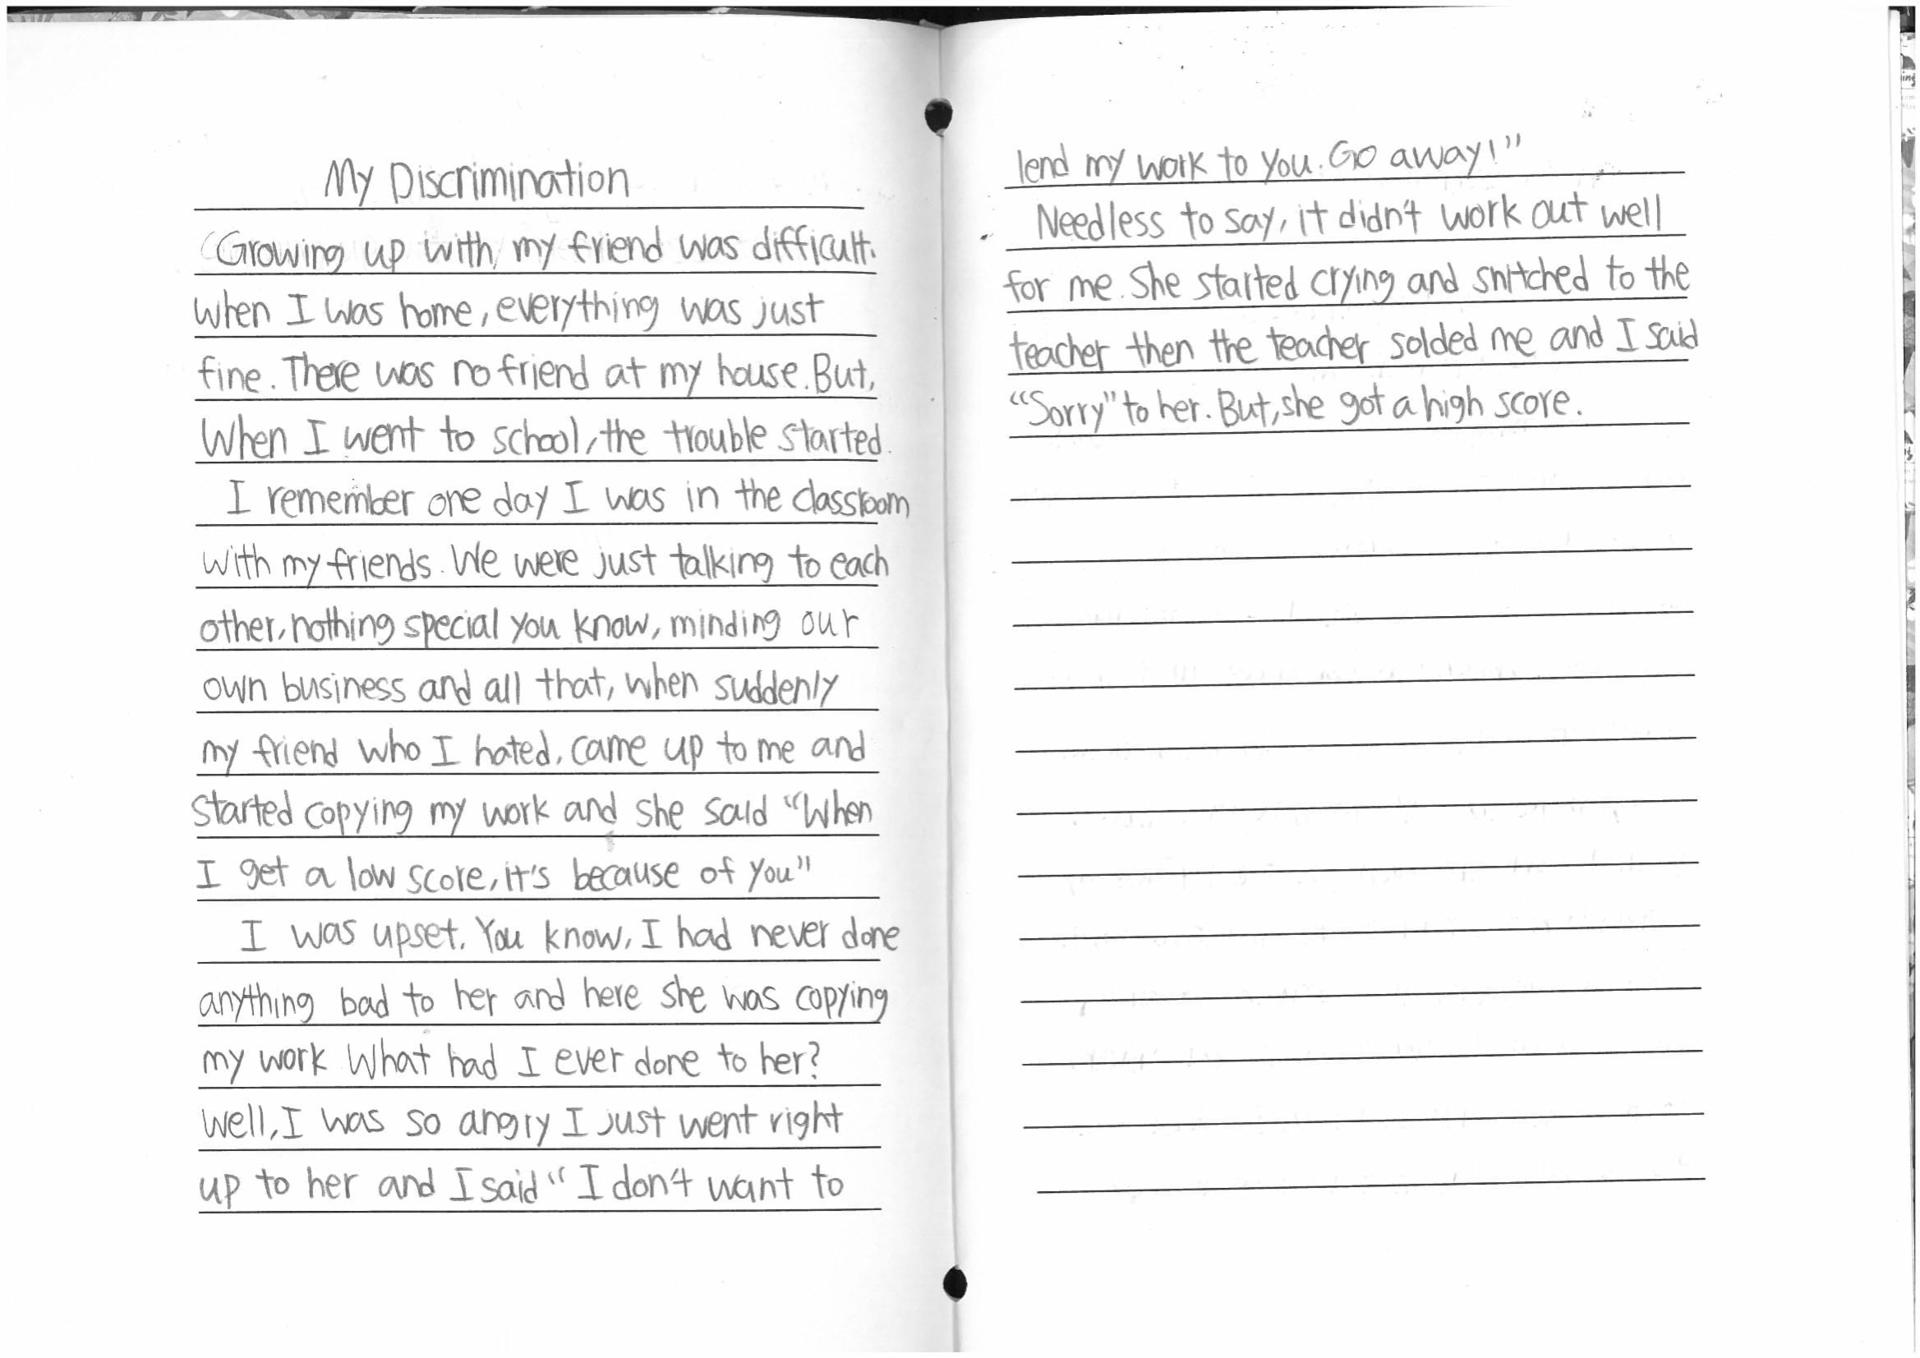 My Discrimination
Growing up with my friend was difficult.
When I was home, everything was just
fine. There was no friend at my house. But,
When I went to school, the trouble started.
I remember one day I was in the classroom
with my friends. We were just talking to each
other, nothing special you know, minding our
own business and all that, when suddenly
my friend who I hated, came up to me and
started copying my work and she said "When
I get a low score, it's because of you"
I was upset. You know, I had never done
anything bad to her and here she was copying
my work What had I ever done to her?
Well, I was so angry I just went right
up to her and I said "I don't want to
lend my work to you. Go away!"
Needless to say, it didn't work out well
for me. She started crying and snitched to the
teacher then the teacher solded me and I said
"Sorry" to her. But, she got a high score.